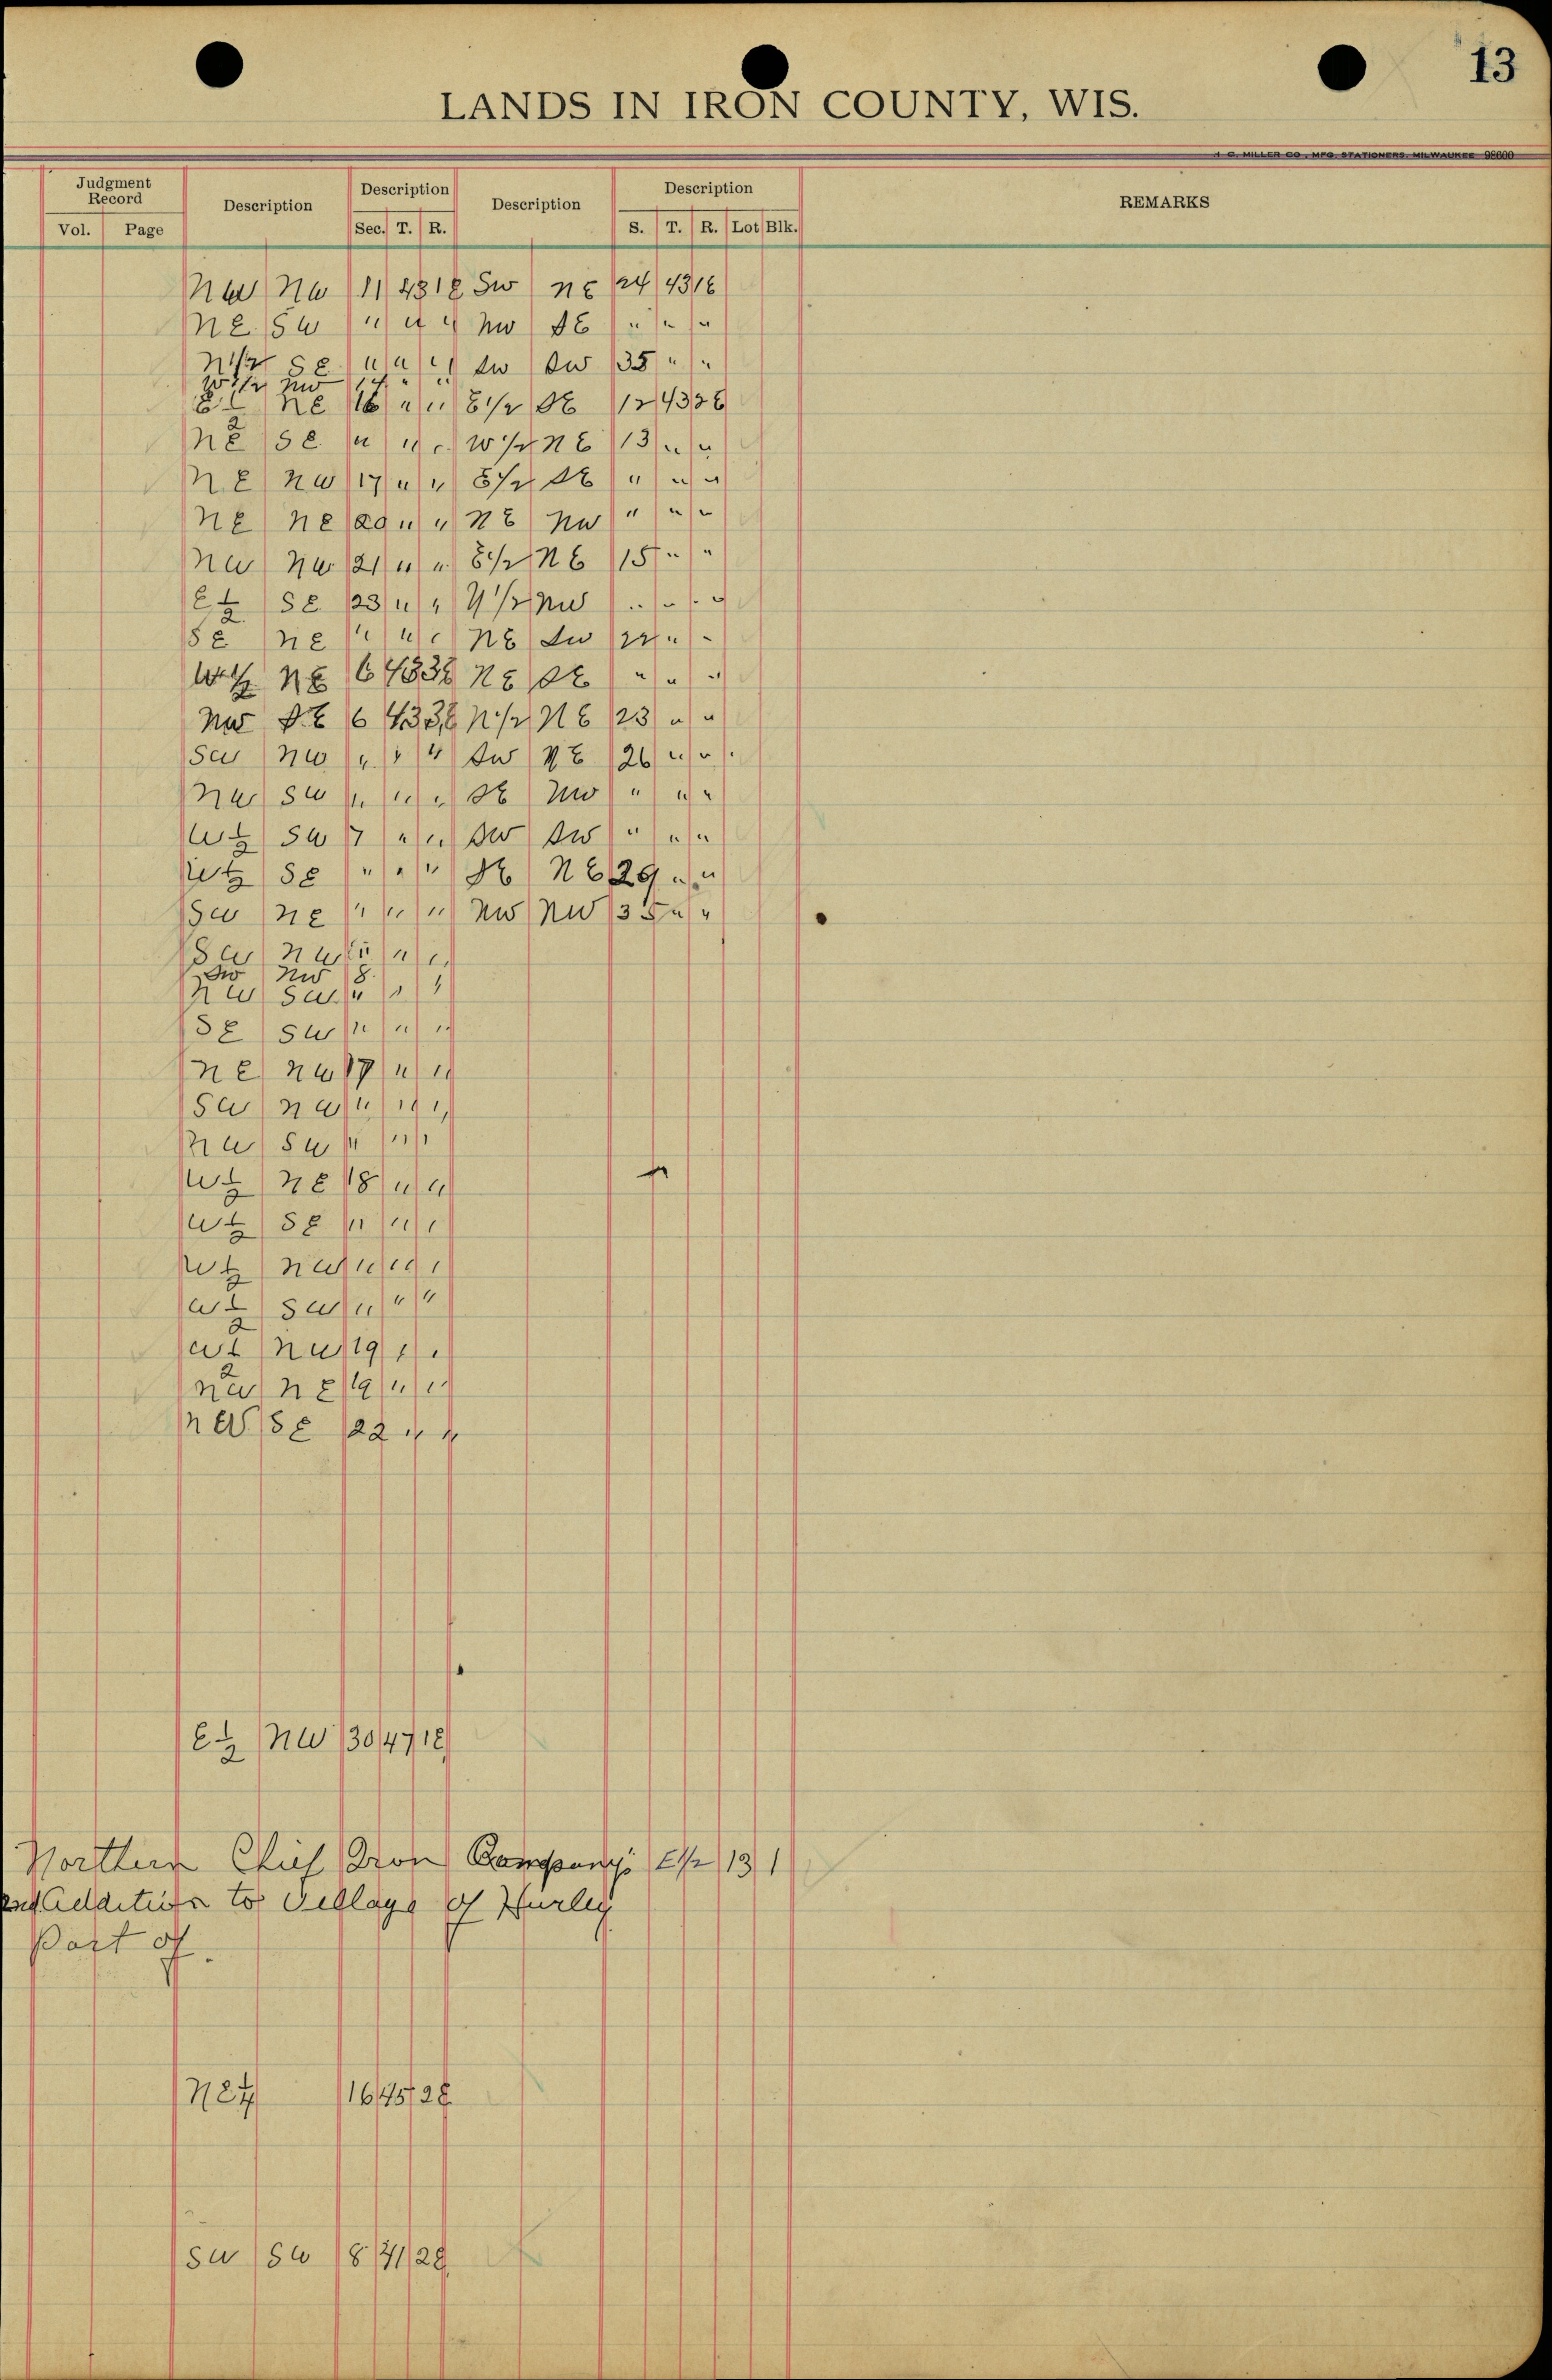 13
LANDS IN IRON COUNTY, WIS.
MILLER CO., MFG. STATIONERS, MILWAUKEE 98600
Judgment Record Description Description Description Description REMARKS
Vol. Page Sec. T. R. S. T. R. Lot Blk.
nw nw 11 43 1E Sw NE 24 43 1E
ne sw " " " nw SE " " "
N1/2 se " " " sw sw 35 " "
W1/2 nw 14 " "
E1/2 ne 16 " " E1/2 SE 12 43 2E
ne se " " " W1/2 NE 13 " "
ne nw 17 " " E1/2 SE " " "
ne ne 20 " " NE nw " " "
nw nw 21 " " E1/2 NE 15 " "
E1/2 se 23 " " N1/2 NW " " "
se ne " " " NE sw 22 " "
W1/2 NE 6 43 3E NE SE " " "
NW SE 6 43 3E N1/2 NE 23 " "
sw nw " " " sw NE 26 " "
nw sw " " " SE NW " " "
W1/2 sw 7 " " SW sw " " "
W1/2 se " " " SE NE 29 " "
sw ne " " " NW NW 35 " "
sw nw " " "
sw nw 8
nw sw " " "
se sw " " "
ne nw 17 " "
sw nw " " "
nw sw " " "
W1/2 ne 18 " "
W1/2 se " " "
W1/2 nw " " "
W1/2 sw " " "
W1/2 nw 19 " "
nw ne 19 " "
nw se 22 " "
E1/2 NW 30 47 1E
Northern Chief Iron Company's E1/2 13 1
2nd Addition to Village of Hurley
Part of.
NE1/4 16 45 2E
SW SW 8 41 2E